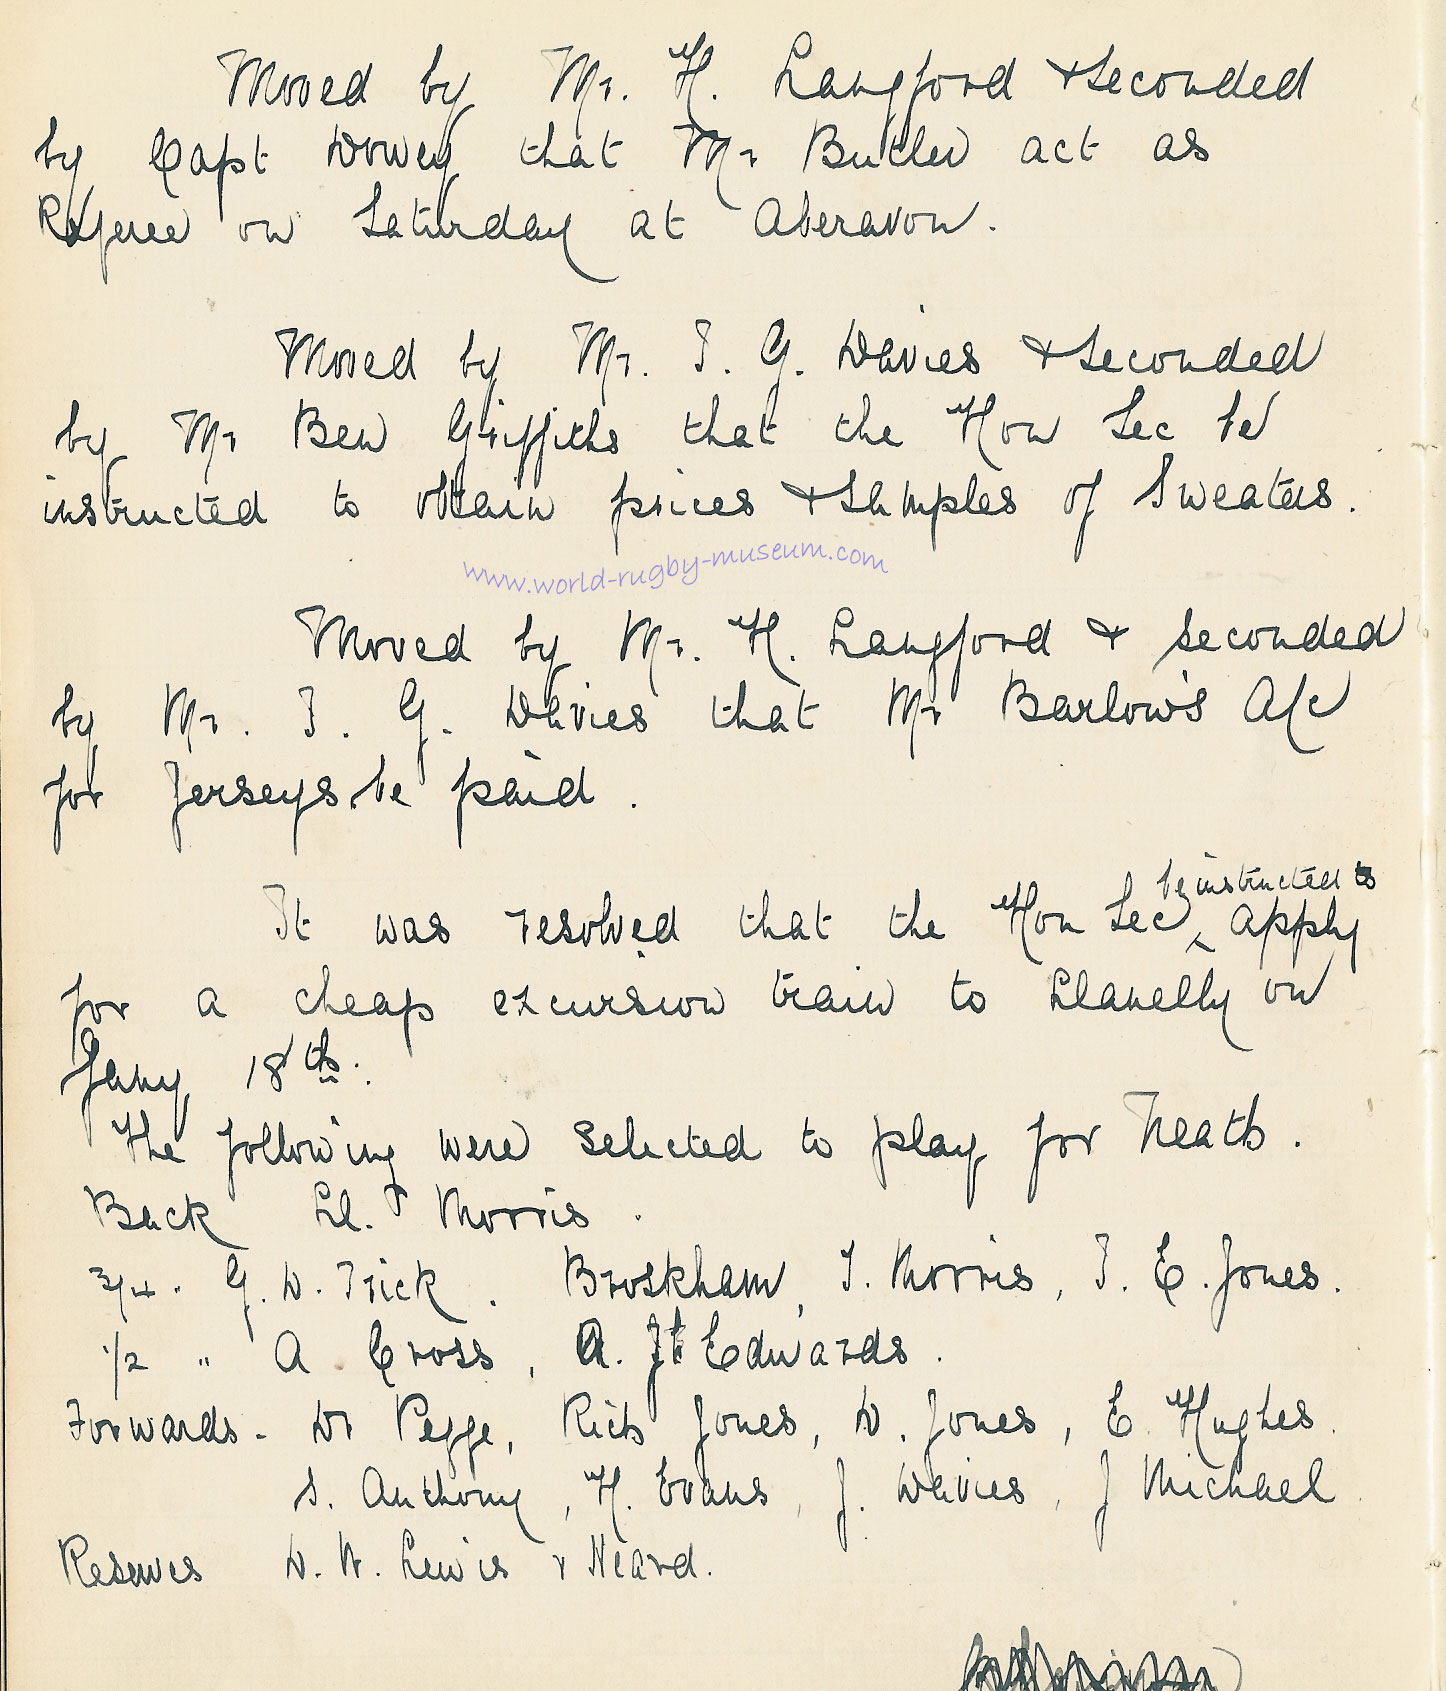 Moved by Mr. H. Langford & Seconded
by Capt Dovey that Mr Butler act as
Referee on Saturday at Aberavon.
Moved by Mr. T. G. Davies & Seconded
by Mr Ben Griffiths that the Hon Sec be
instructed to obtain prices & Samples of Sweaters.
www.world-rugby-museum.com
Moved by Mr. H. Langford & seconded
by Mr. T. G. Davies that Mr Barlow's A/c
for Jerseys be paid.
be instructed to
It was resolved that the Hon Sec ^ apply
for a cheap excursion train to Llanelly on
Jany 18th.
The following were selected to play for Neath.
Back Ll. Morris.
3/4. G. D. Trick. Broskham, T. Morris, T. E. Jones.
1/2 " A Cross, A. Edwards.
Forwards - Dr Pegge, Rich Jones, D. Jones, E. Hughes.
S. Anthony, H. Evans, J. Davies, J Michael.
Reserves D. W. Lewis & Heard.